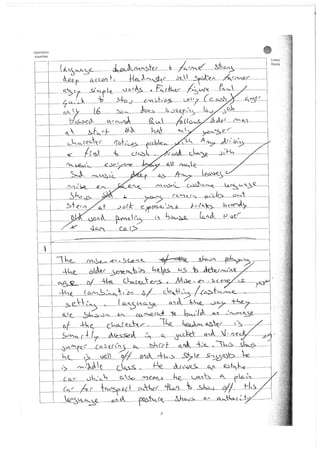 Question
number
Leave
blank
language headmaster & farmer strong
deep accent. Headmaster well spoken farmer
uses simple words. Farther figure Paul
quick to show emotions very (cash) anger
only 16 son does sweeping low job
bossed around Paul follows older man
at start old hat only younger
character notices problem with Amy driving
& first to crash road change with
music everyone all male
Sad music deep as Amy leaves
mise en scene music costume language
Shows old & young camera picks out
Stern at work expositions drinks brandy
old wood panneling is house land over
1
The mise-en-scene shown
the older generation helps us to determine
age of the charecters. Mise-en-scene is
the combination of clothing/costume
setting, language and the way they
are shown on camera to build an image
of the charecter. The headmaster is
smartly dressed in a jacket and V-neck
jumper covering a shirt and tie. This shows
he is well off and this style suggests he
is middle class. He drives an estate
car which also means he wants a plain
car for transport rather than to show off. His
language and posture shows an authority
2